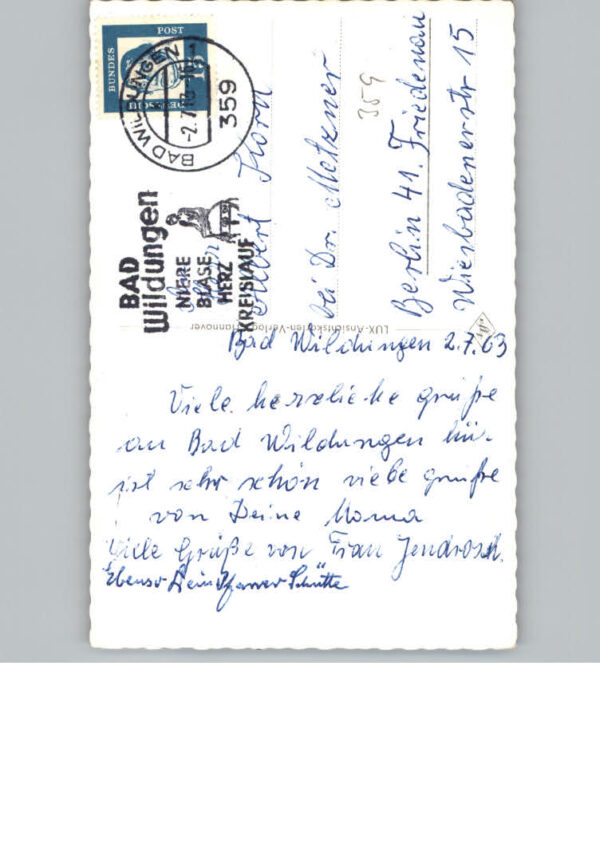 BUNDES
POST
15
BAD WILDUNGEN
-2.7.63-10
359
BAD
Wildungen
NIERE
BLASE
HERZ
KREISLAUF
Albert Korn
bei Dr. Metzner
359
Berlin 41. Friedenau
Wiesbadenerstr 15
LUX-Ansichtskarten-Verlag, Hannover
Bad Wildungen 2.7.63
Viele herzliche grüße
au Bad Wildungen hir
ist sehr schön viebe grüße
von Deine Mama
Viele Grüße von Frau Jendrosch.
Ebenso Dein Pfarrer Schütte